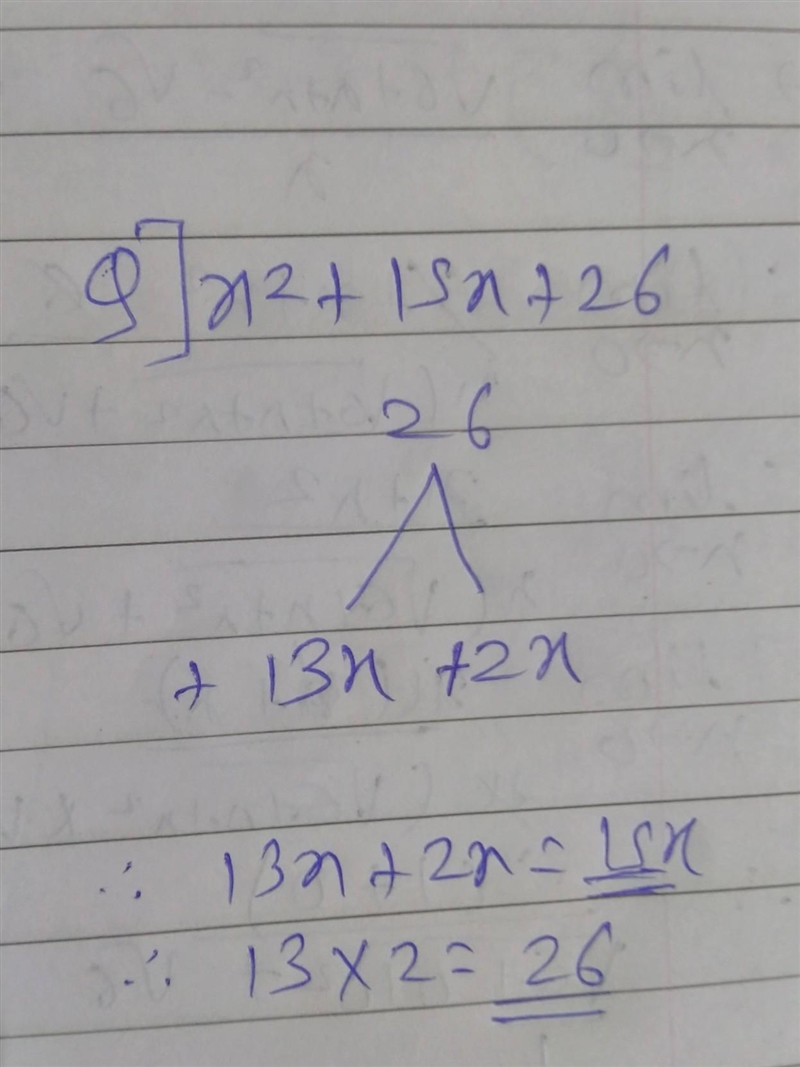 Q] x2 + 15x + 26
26
+ 13x +2x
∴ 13x + 2x = 15x
∴ 13 × 2 = 26